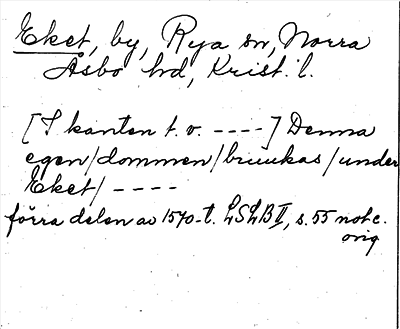 Eket, by, Rya sn, Norra
Åsbo hd, Krist. l.
[I kanten t. v. ----] Denna
egen/dommen/bruukas/under
Eket/ ----
förra delen av 1570-t. LSLB II, s. 55 not c.
orig